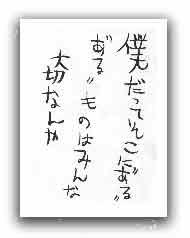 僕だってそこに“ある”
ある“ものはみんな
大切なんか